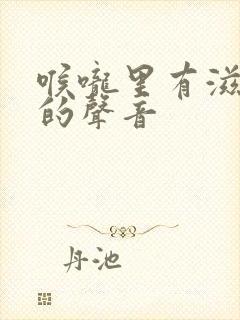 喉嚨里有滋
的聲音
丹池